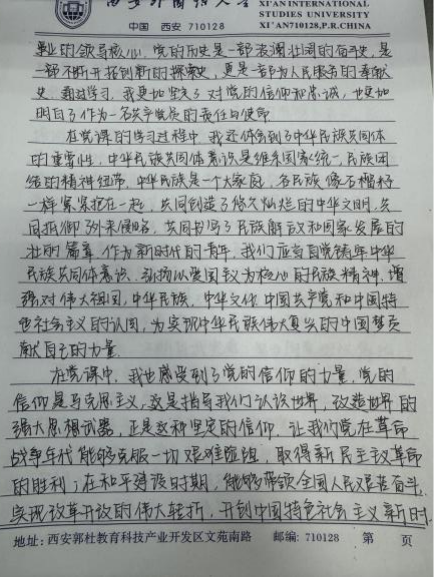 西安外国语大学
XI'AN INTERNATIONAL
STUDIES UNIVERSITY
中国 西安 710128
XI'AN710128,P.R.CHINA
业的领导核心。党的历史是一部波澜壮阔的奋斗史,是
一部不断开拓创新的探索史,更是一部为人民服务的奉献
史。通过学习,我更加坚定了对党的信仰和忠诚,也更加
明白了作为一名共产党员的责任与使命。
在党课的学习过程中,我还体会到了中华民族共同体
的重要性。中华民族共同体意识是维系国家统一、民族团
结的精神纽带。中华民族是一个大家庭,各民族像石榴籽
一样紧紧抱在一起,共同创造了悠久灿烂的中华文明,共
同抵御了外来侵略,共同书写了民族解放和国家发展的
壮丽篇章。作为新时代的青年,我们应当自觉铸牢中华
民族共同体意识,弘扬以爱国主义为核心的民族精神,增
强对伟大祖国、中华民族、中华文化、中国共产党和中国特
色社会主义的认同,为实现中华民族伟大复兴的中国梦贡
献自己的力量。
在党课中,我也感受到了党的信仰的力量。党的
信仰是马克思主义,这是指导我们认识世界、改造世界的
强大思想武器。正是这种坚定的信仰,让我们党在革命
战争年代能够克服一切艰难险阻,取得新民主主义革命
的胜利;在和平建设时期,能够带领全国人民艰苦奋斗,
实现改革开放的伟大转折,开创中国特色社会主义新时
地址:西安郭杜教育科技产业开发区文苑南路 邮编:710128 第 页